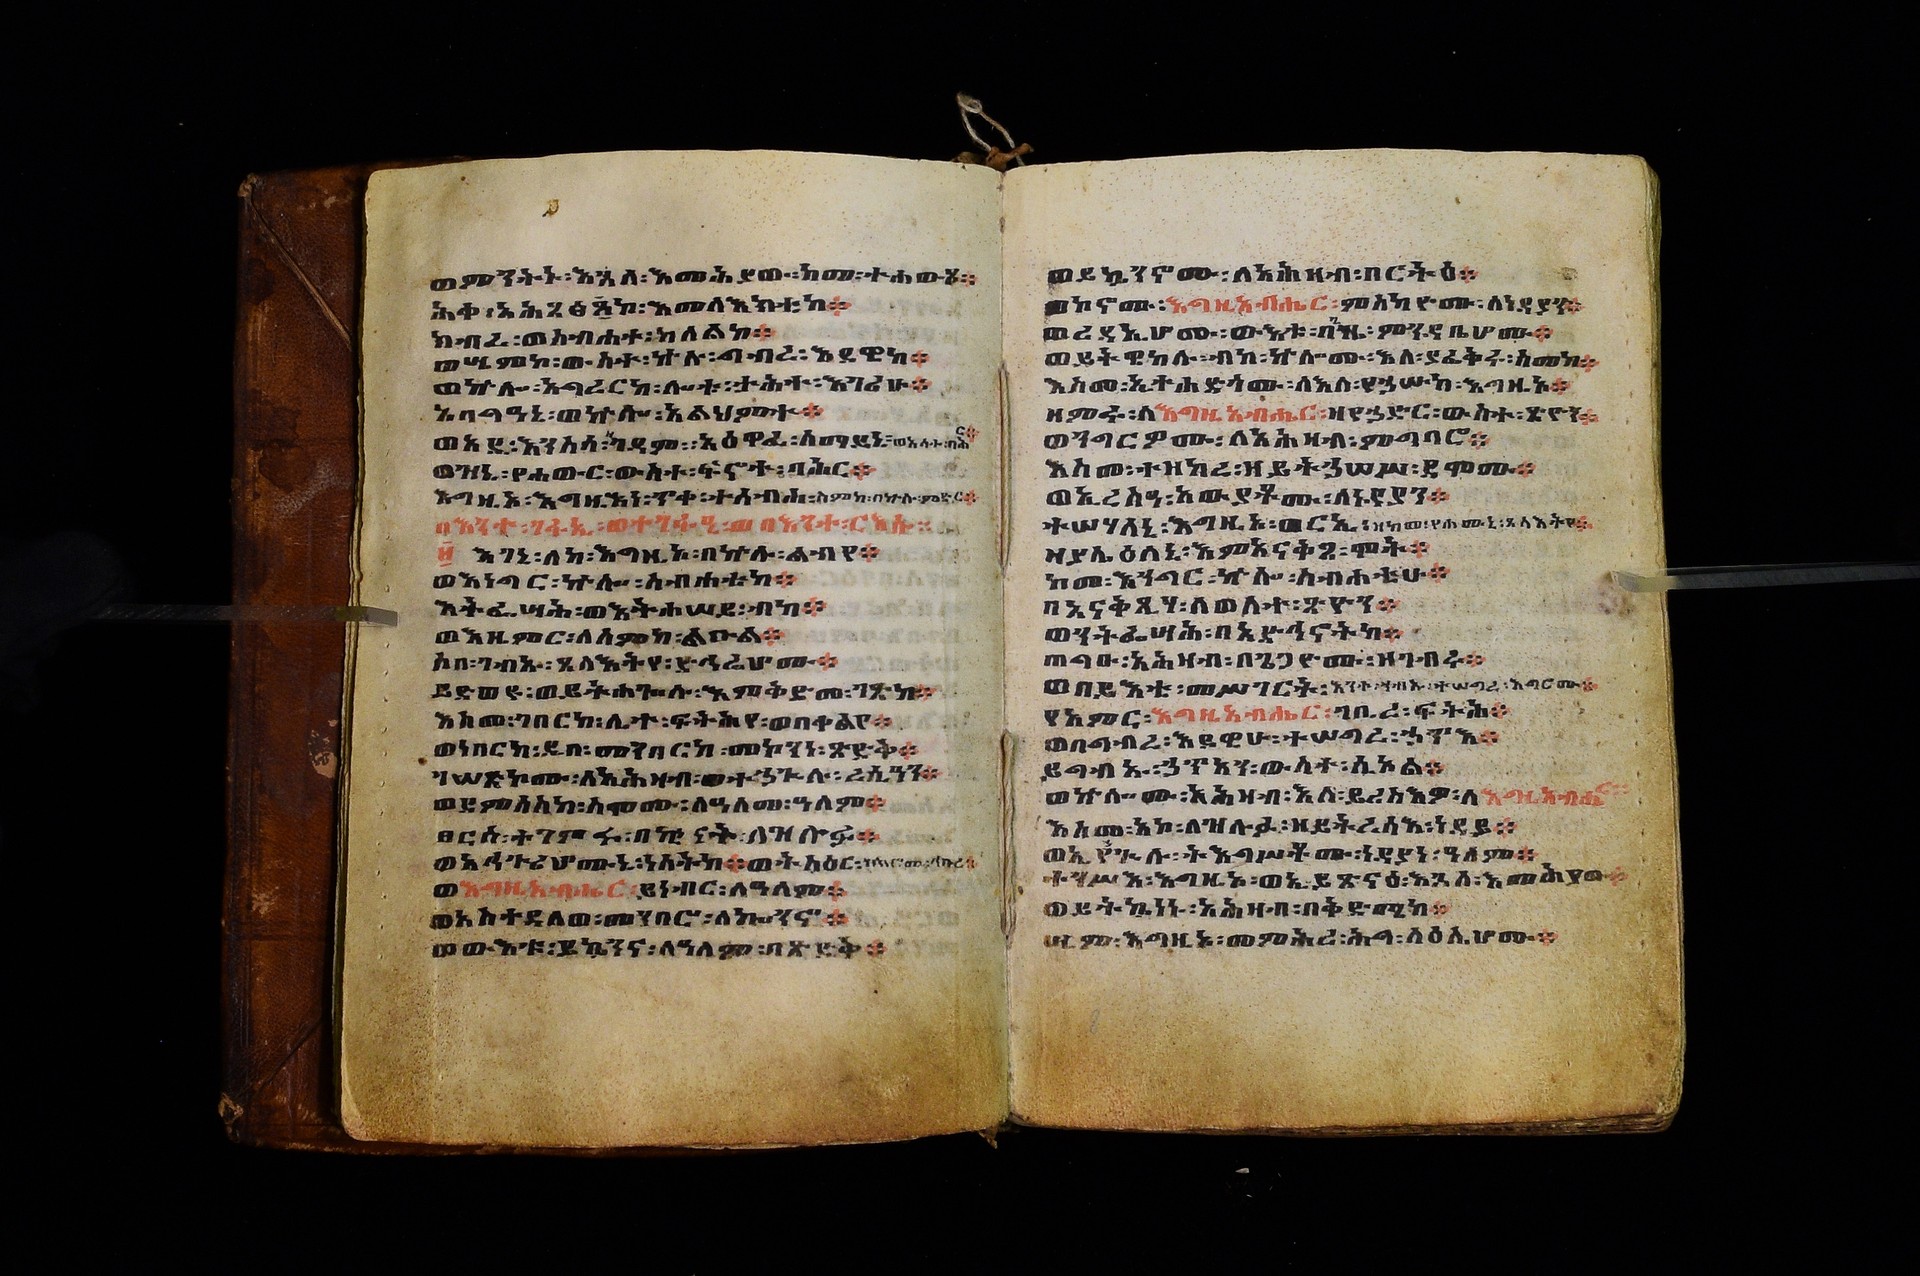 ወምንትኑ፡እጓለ፡እመሕያው፡ከመ፡ተሐውጾ፨
ሕቀ፡አሕጸፅኮ፡እመላእክቲከ፨
ክብረ፡ወስብሐተ፡ከለልኮ፨
ወሢምኮ፡ውስተ፡ኵሉ፡ግብረ፡እደዊከ፨
ወኵሎ፡አግረርከ፡ሎቱ፡ታሕተ፡እገሪሁ፨
አባግዓኒ፡ወኵሎ፡አልህምተ፨
ወእንስሳ፡ገዳም፡አዕዋፈ፡ሰማይኒ፡
ወዝኒ፡የሐውር፡ውስተ፡ፍኖተ፡ባሕር፨
እግዚኦ፡እግዚእነ፡ጥቀ፡ተሰብሐ፡ስምከ፡በኵሉ፡ምድር፨
በእንተ፡ወበእንተ፡ርእሱ፡
፱ እገኒ፡ለከ፡እግዚኦ፡በኵሉ፡ልብየ፨
ወእነግር፡ኵሎ፡ስብሐቲከ፨
እትፌሣሕ፡ወእትሐሠይ፡ብከ፨
ወእዜምር፡ለስምከ፡ልዑል፨
ሶበ፡ገብኡ፡ጸላእትየ፡ድኅሬሆሙ፨
ይድወዩ፡ወይትሐጐሉ፡እምቅድመ፡ገጽከ፨
እስመ፡ገበርከ፡ሊተ፡ፍትሕየ፡ወበቀልየ፨
ወነበርከ፡ዲበ፡መንበርከ፡መኰንነ፡ጽድቅ፨
ገሠጽኮሙ፡ለአሕዛብ፡ወተኃጕሉ፡ረሲዓን፨
ወደምሰስከ፡ስሞሙ፡ለዓለመ፡ዓለም፨
ፀርሰ፡ተገምሩ፡በኲናት፡ለዝሉፉ፨
ወአኅጕል፡ነስትከ፨
ወእግዚአብሔር፡ይነብር፡ለዓለም፨
ወአስተዳለወ፡መንበሮ፡ለኰንኖ፨
ወውእቱ፡ይኴንና፡ለዓለም፡በጽድቅ፨
ወይኴንኖሙ፡ለአሕዛብ፡በርትዕ፨
ወኮኖሙ፡እግዚአብሔር፡ምስካዮሙ፡ለነዳያን፨
ወረዳኢሆሙ፡ውእቱ፡በጊዜ፡ምንዳቤሆሙ፨
ወይትዌከሉ፡ብከ፡ኵሎሙ፡እለ፡ያፈቅሩ፡ስመከ፨
እስመ፡ኢተሐድጎሙ፡ለእለ፡የኃሡከ፡እግዚኦ፨
ዘምሩ፡ለእግዚአብሔር፡ዘየኃድር፡ውስተ፡ጽዮን፨
ወንግርዎሙ፡ለአሕዛብ፡ምግባሮ፨
እስመ፡ተዘከረ፡ዘይትኃሠሥ፡ደሞሙ፨
ወኢረስዓ፡አውያቶሙ፡ለነዳያን፨
ተሣሃለኒ፡እግዚኦ፡ወርኢ፡ዘከመ፡የሐሙኒ፡ጸላእትየ፨
ዘያሌዕለኒ፡እምአናቅጸ፡ሞት፨
ከመ፡እንግር፡ኵሎ፡ስብሐቲሁ፨
በአናቅጺሃ፡ለወለተ፡ጽዮን፨
ወንትፌሣሕ፡በአድኅኖትከ፨
ጠግዑ፡አሕዛብ፡በጌጋዮሙ፡ዘገብሩ፨
ወበይእቲ፡መሥገርት፡እንተ፡ኀብኡ፡ተሠግረ፡እግሮሙ፨
የአምር፡እግዚአብሔር፡ገቢረ፡ፍትሕ፨
ወበግብረ፡እደዊሁ፡ተሠግረ፡ኃጥእ፨
ይግብኡ፡ኃጥኣን፡ውስተ፡ሲኦል፨
ወኵሎሙ፡አሕዛብ፡እለ፡ይረስእዎ፡ለእግዚአብሔር፨
እስመ፡አኮ፡ለዝሉፉ፡ዘይትረሳእ፡ነዳይ፨
ወኢየኃጕሉ፡ትእግሥቶሙ፡ነዳያን፡ዓለም፨
ተንሥእ፡እግዚኦ፡ወኢይጽናዕ፡እጓለ፡እመሕያው፨
ወይትኰነኑ፡አሕዛብ፡በቅድሜከ፨
ሢም፡እግዚኦ፡መምህረ፡ሕግ፡ላዕሌሆሙ፨